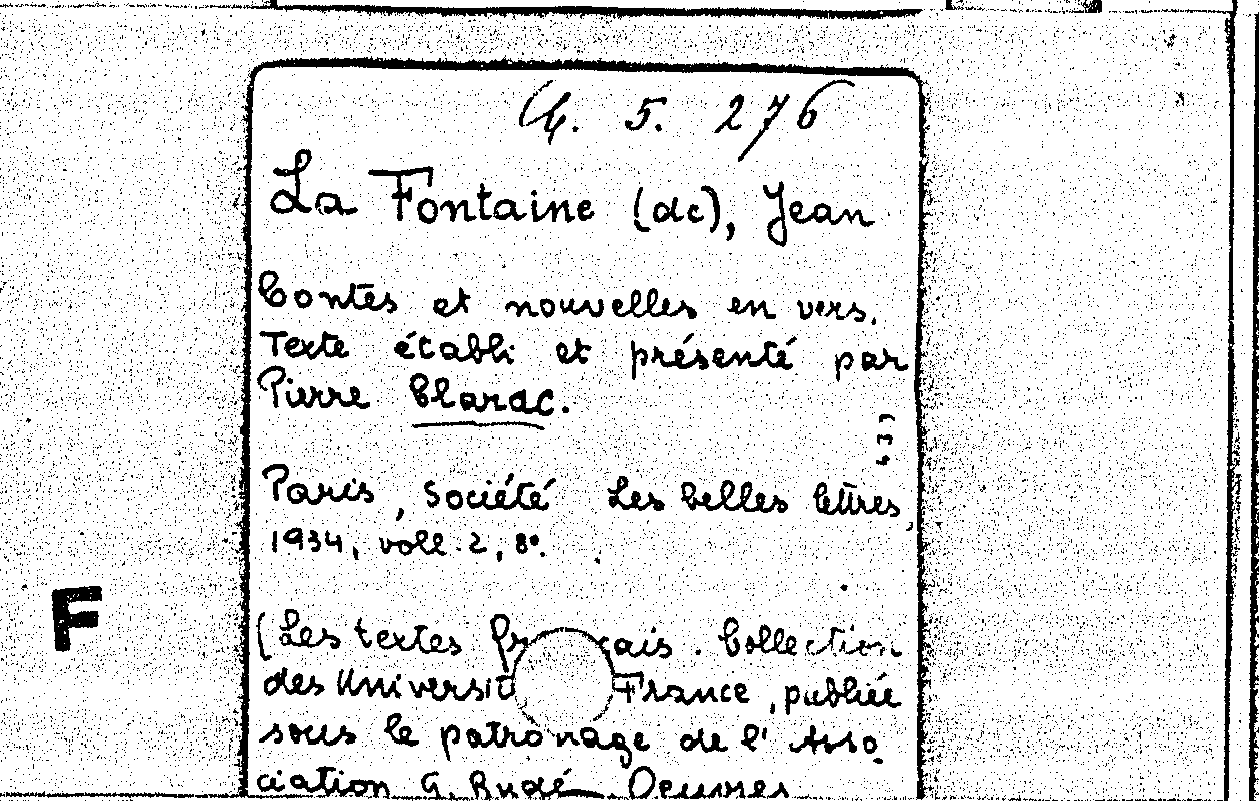 G. 5. 276
La Fontaine (de), Jean
Contes et nouvelles en vers.
Texte établi et présenté par
Pierre Clarac.
Paris, Société Les belles lettres,
1934, voll. 2, 8º.
F
(Les textes français. Collection
des Universit France, publiée
sous le patronage de l'Asso
ciation G. Budé. Oeuvres